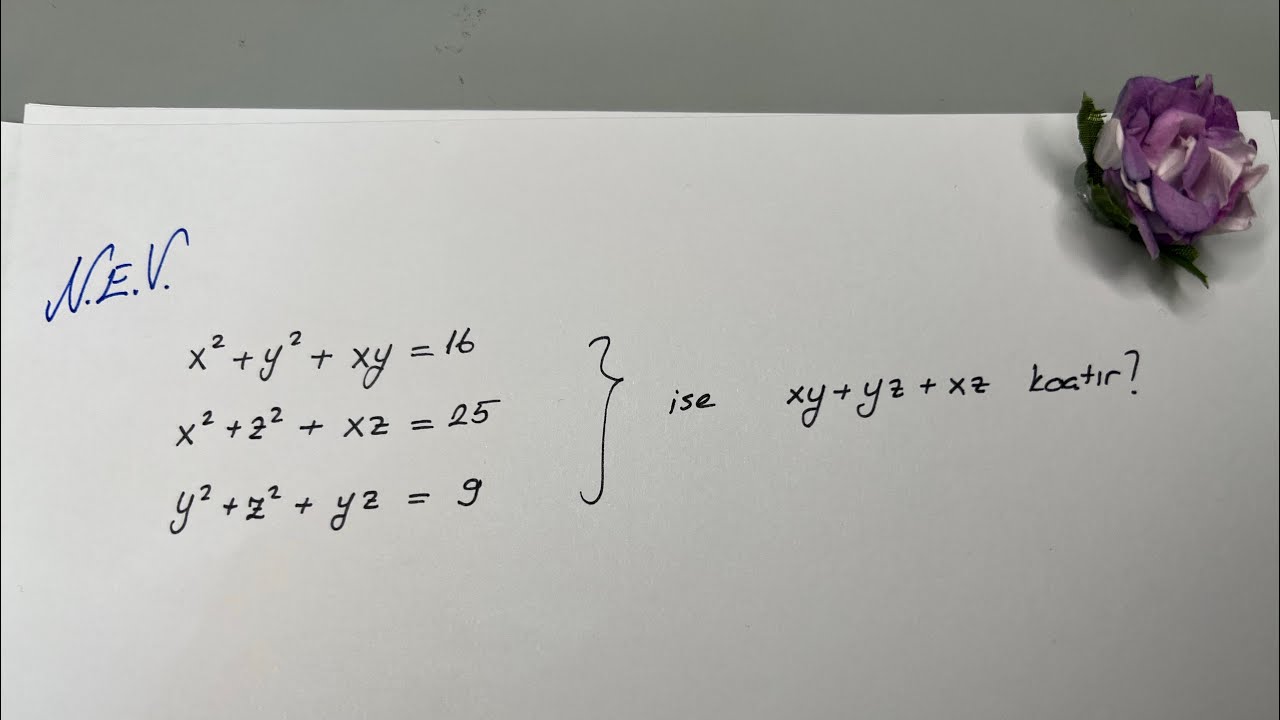 N.E.V.
x² + y² + xy = 16
x² + z² + xz = 25
y² + z² + yz = 9
ise xy + yz + xz kaçtır?